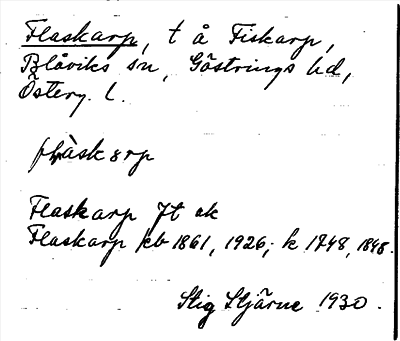 Flaskarp, t å Fiskarp,
Blåviks sn, Göstrings hd,
Österg. l.
Flaskarp Jt ek
Flaskarp kb 1861, 1926; k 1748, 1848.
Stig Stjärne 1930.